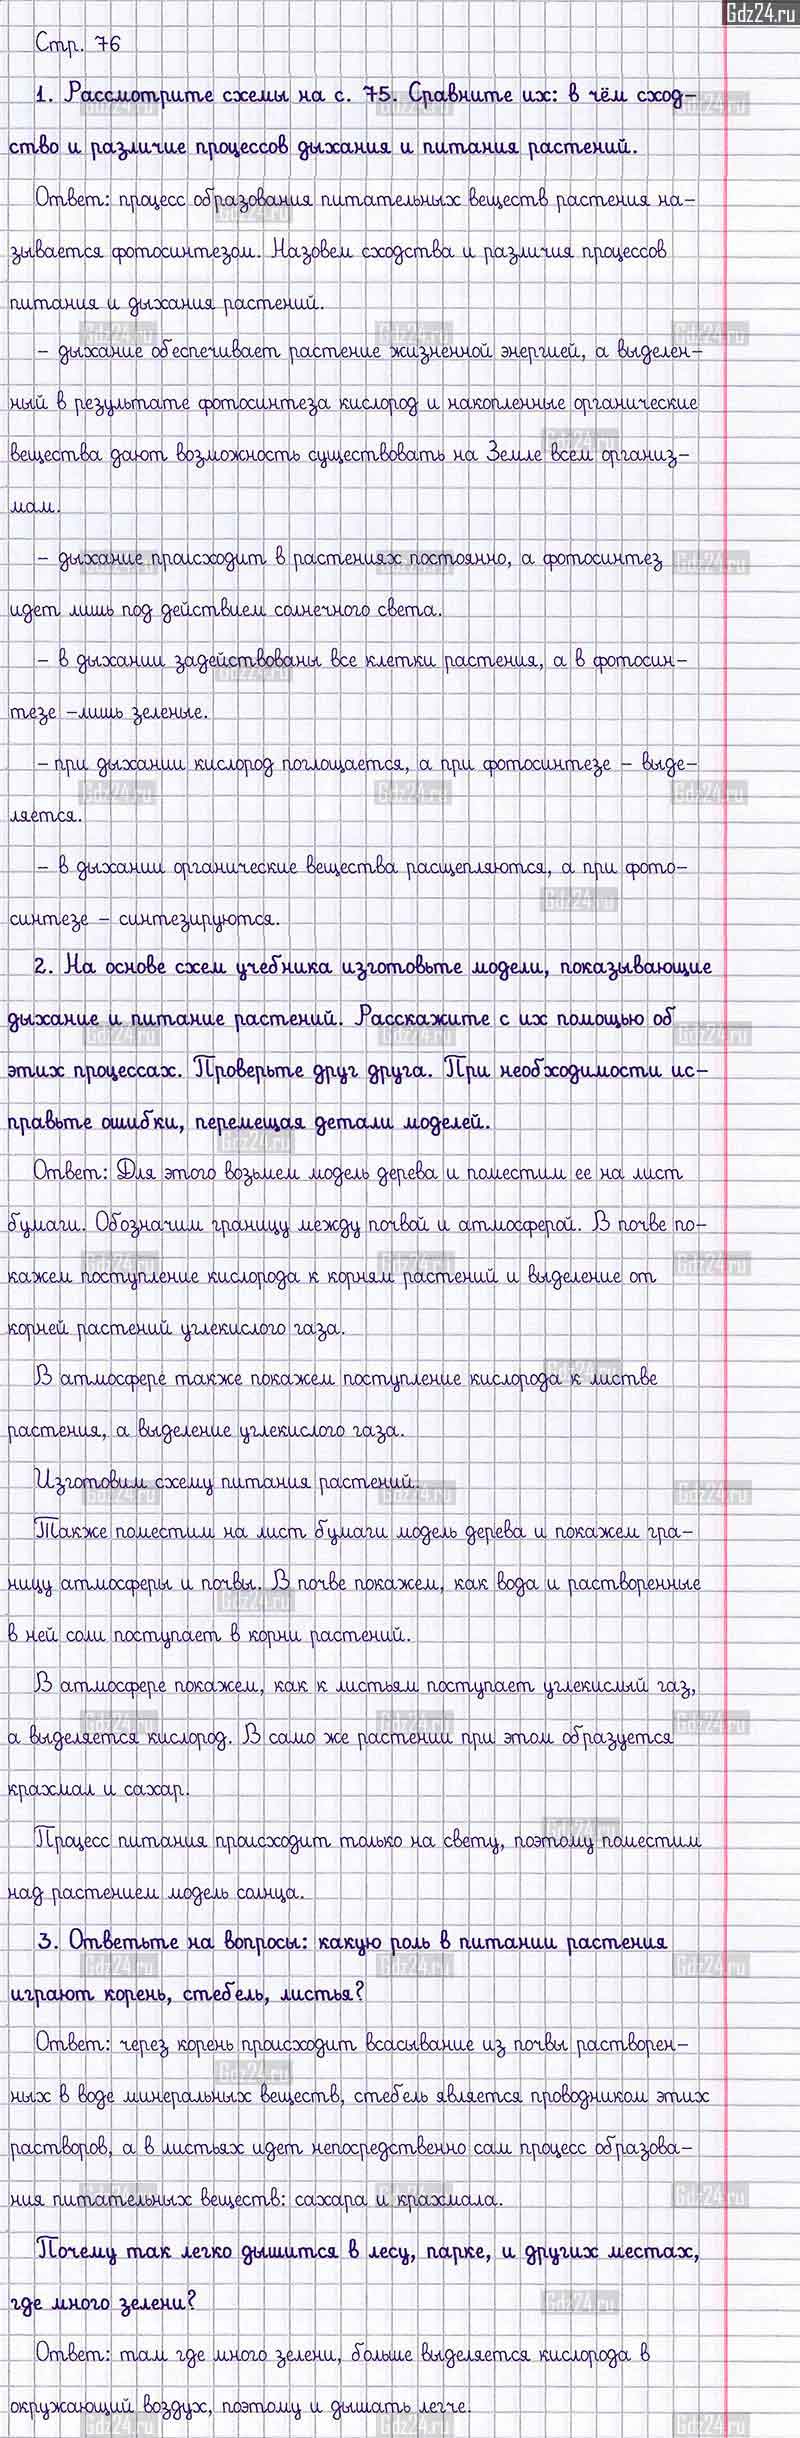 Gdz24.ru
Стр. 76
1. Рассмотрите схемы на с. 75. Сравните их: в чём сход-
ство и различие процессов дыхания и питания растений.
Ответ: процесс образования питательных веществ растения на-
зывается фотосинтезом. Назовем сходства и различия процессов
питания и дыхания растений.
– дыхание обеспечивает растение жизненной энергией, а выделен-
ный в результате фотосинтеза кислород и накопленные органические
вещества дают возможность существовать на Земле всем организ-
мам.
– дыхание происходит в растениях постоянно, а фотосинтез
идет лишь под действием солнечного света.
– в дыхании задействованы все клетки растения, а в фотосин-
тезе –лишь зеленые.
– при дыхании кислород поглощается, а при фотосинтезе – выде-
ляется.
– в дыхании органические вещества расщепляются, а при фото-
синтезе – синтезируются.
2. На основе схем учебника изготовьте модели, показывающие
дыхание и питание растений. Расскажите с их помощью об
этих процессах. Проверьте друг друга. При необходимости ис-
правьте ошибки, перемещая детали моделей.
Ответ: Для этого возьмем модель дерева и поместим ее на лист
бумаги. Обозначим границу между почвой и атмосферой. В почве по-
кажем поступление кислорода к корням растений и выделение от
корней растений углекислого газа.
В атмосфере также покажем поступление кислорода к листве
растения, а выделение углекислого газа.
Изготовим схему питания растений.
Также поместим на лист бумаги модель дерева и покажем гра-
ницу атмосферы и почвы. В почве покажем, как вода и растворенные
в ней соли поступает в корни растений.
В атмосфере покажем, как к листьям поступает углекислый газ,
а выделяется кислород. В само же растении при этом образуется
крахмал и сахар.
Процесс питания происходит только на свету, поэтому поместим
над растением модель солнца.
3. Ответьте на вопросы: какую роль в питании растения
играют корень, стебель, листья?
Ответ: через корень происходит всасывание из почвы растворен-
ных в воде минеральных веществ, стебель является проводником этих
растворов, а в листьях идет непосредственно сам процесс образова-
ния питательных веществ: сахара и крахмала.
Почему так легко дышится в лесу, парке, и других местах,
где много зелени?
Ответ: там где много зелени, больше выделяется кислорода в
окружающий воздух, поэтому и дышать легче.